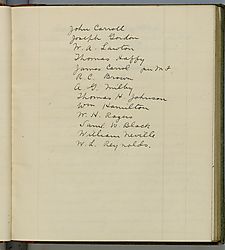 John Carroll
Joseph Gordon
W. A. Lawton
Thomas Happy
James Carrol
R. C. Brown
A. G. Milby
Thomas H. Johnson
Wm Hamilton
W. H. Rogers
Saml W Black
William Neville
W. L. Reynolds.